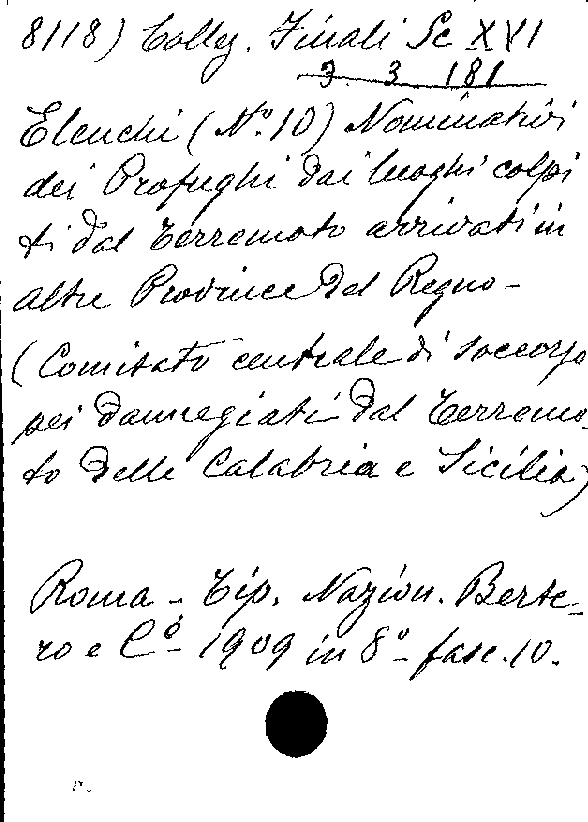 8118) Colloz. Finali Sc XVI
3 3 181
Elenchi (N.º 10) Nominativi
dei Profughi dai luoghi colpi
ti dal terremoto arrivati in
altre Provincie del Regno -
(Comitato centrale di soccorso
pei danneggiati dal terremo
to delle Calabria e Sicilia)
Roma - Tip. Nazion. Berte-
ro e Cº - 1909 in 8º - fasc. 10.